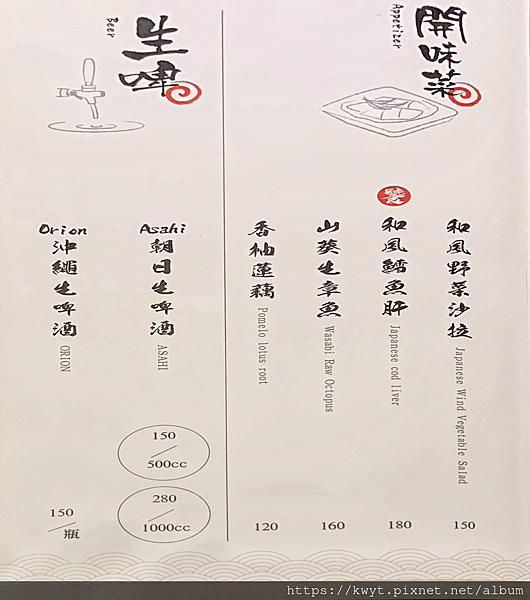 開味菜
Appetizer
和風野菜沙拉 Japanese Wind Vegetable Salad
150
和風鱈魚肝 Japanese cod liver
180
山葵生章魚 Wasabi Raw Octopus
160
香柚蓮藕 Pomelo lotus root
120
生啤
Beer
Asahi
朝日生啤酒 ASAHI
150/500cc
280/1000cc
Orion
沖繩生啤酒 ORION
150/瓶
https://kwyt.pixnet.net/album